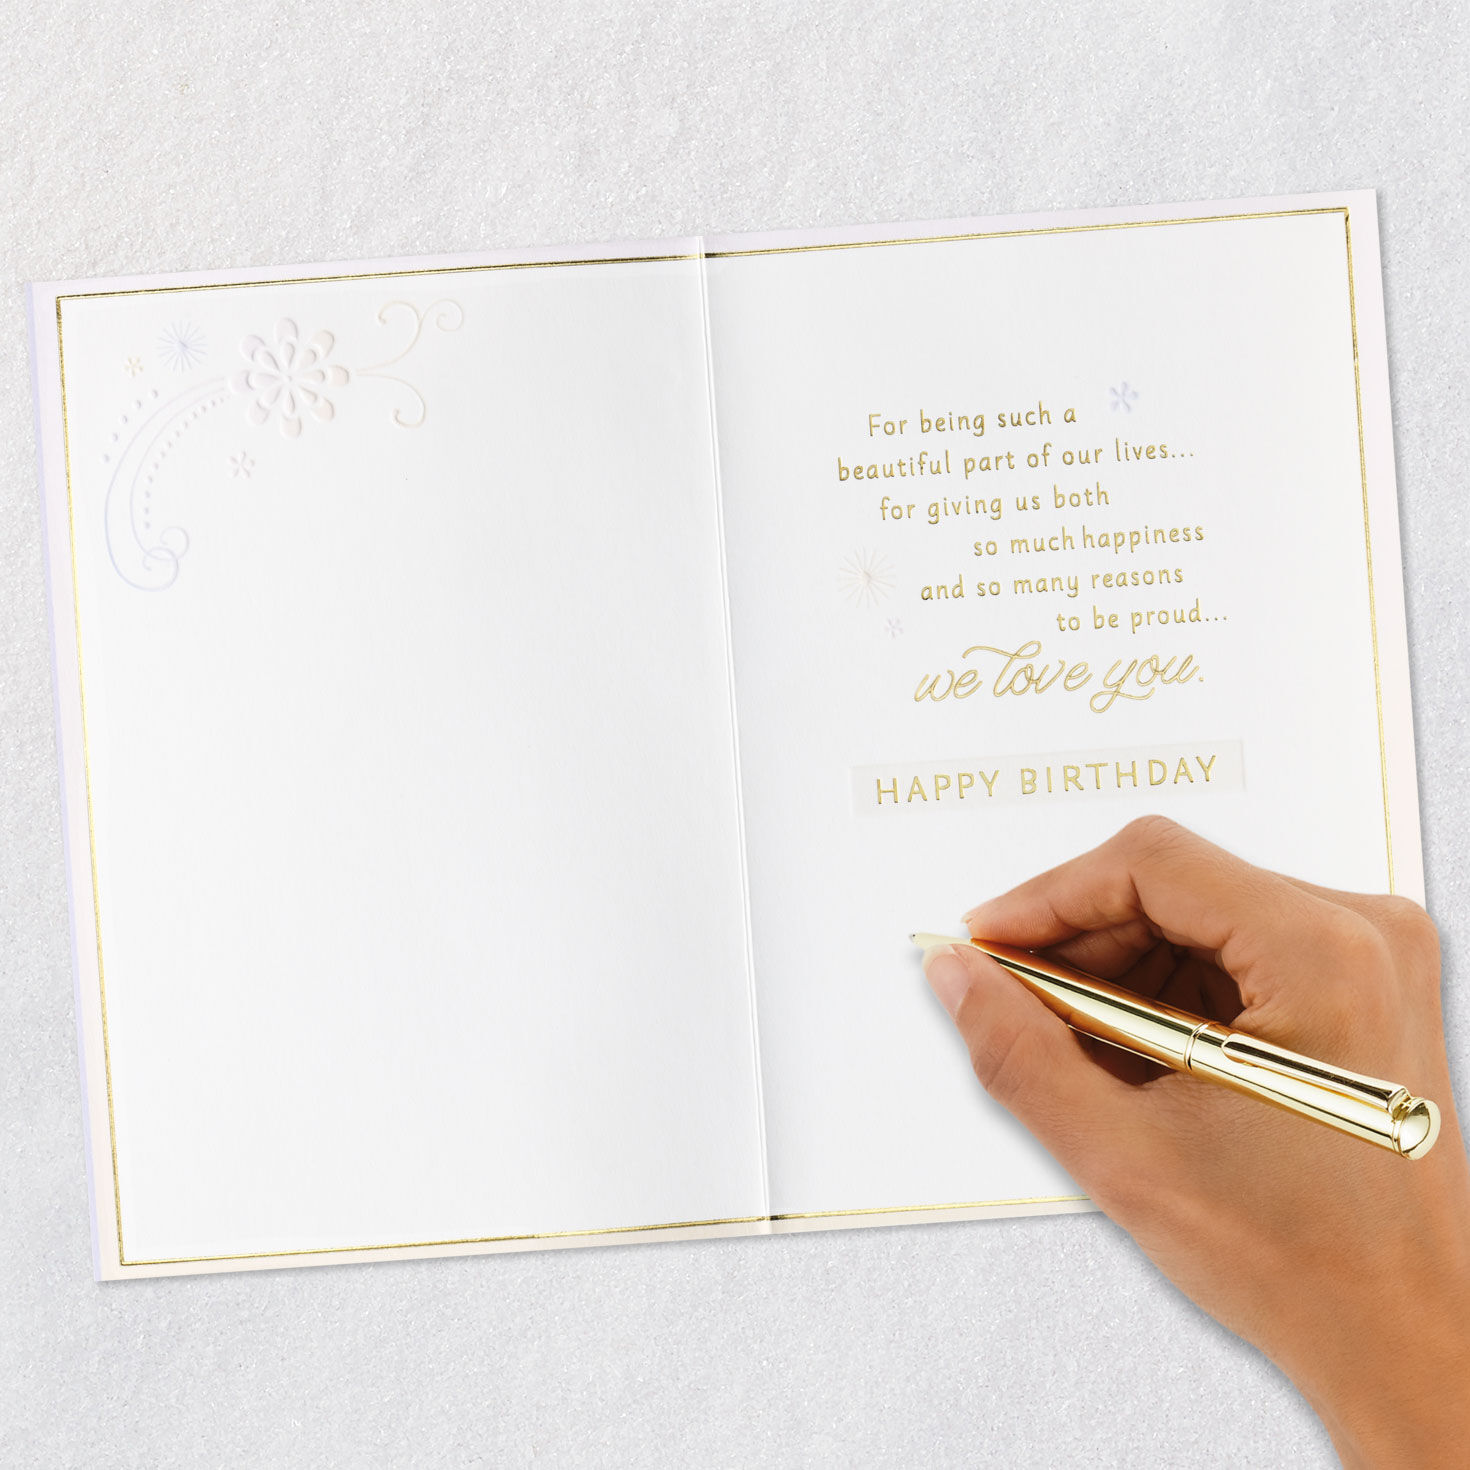 For being such a
beautiful part of our lives...
for giving us both
so much happiness
and so many reasons
to be proud...
we love you.
HAPPY BIRTHDAY